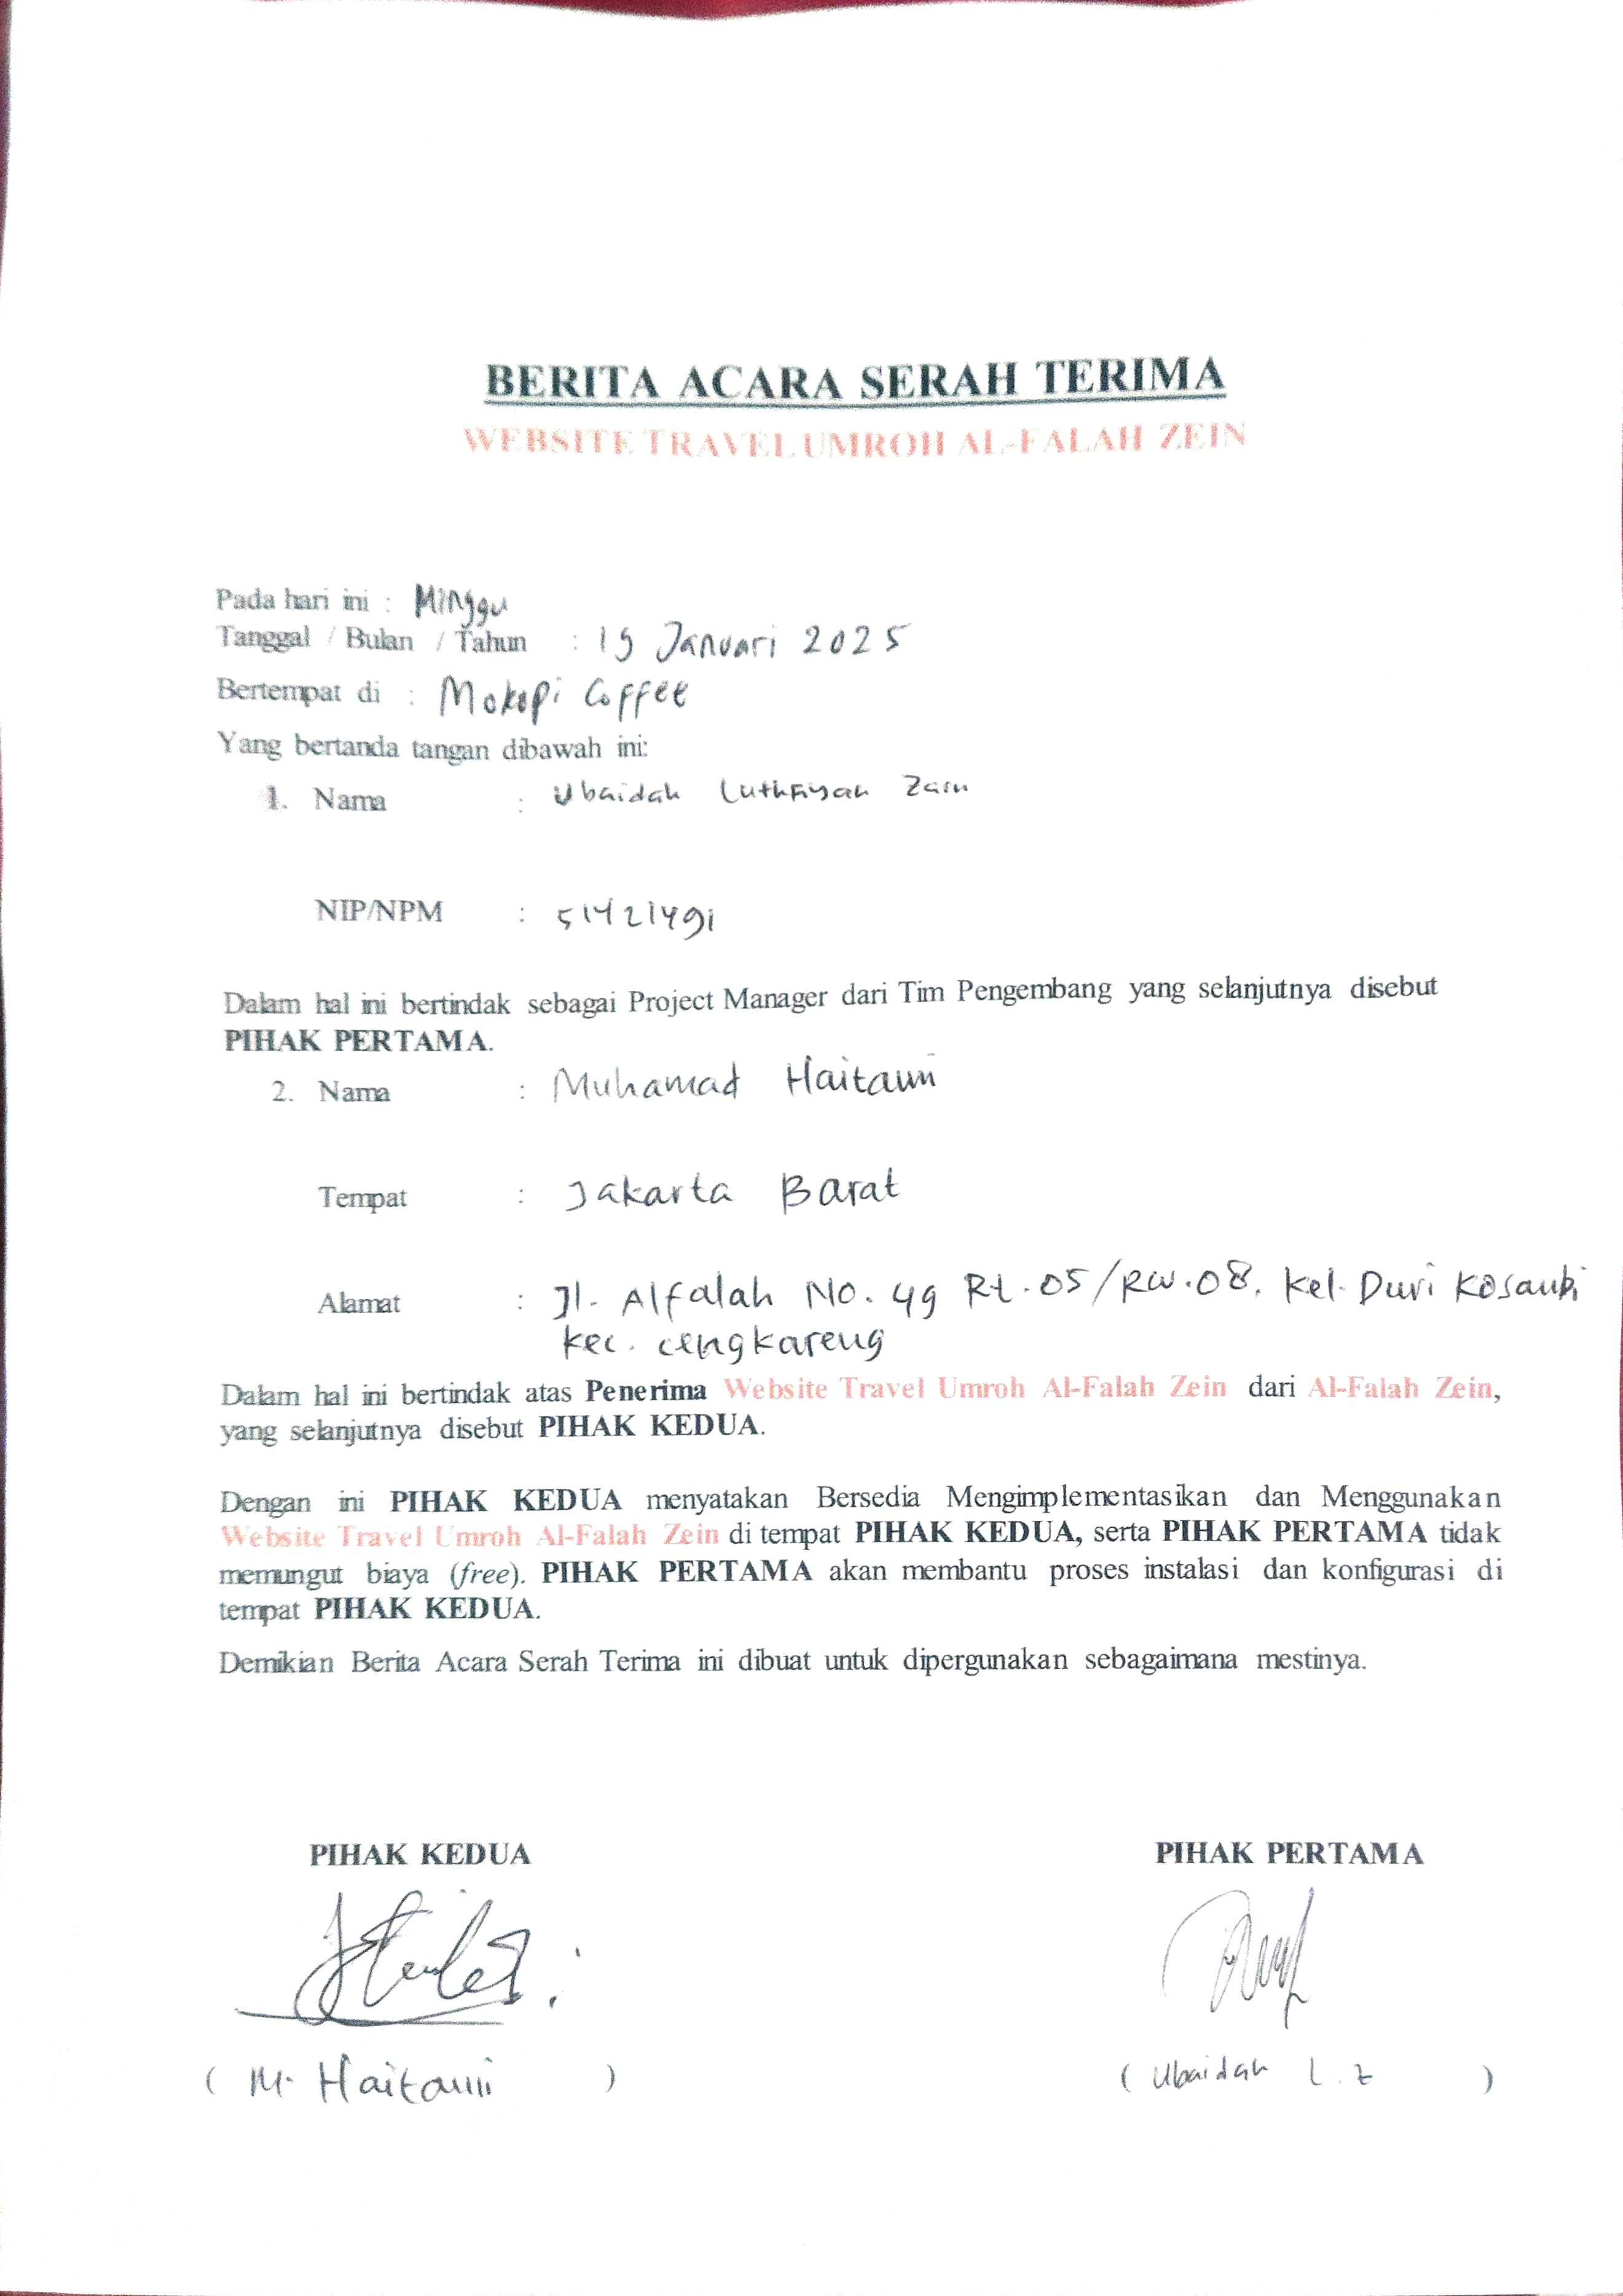 BERITA ACARA SERAH TERIMA
WEBSITE TRAVEL UMROH AL-FALAH ZEIN
Pada hari ini : Minggu
Tanggal / Bulan / Tahun : 19 Januari 2025
Bertempat di : Mokopi Coffee
Yang bertanda tangan dibawah ini:
1. Nama : Ubaidah Luthfiyah Zain
NIP/NPM : 51421491
Dalam hal ini bertindak sebagai Project Manager dari Tim Pengembang yang selanjutnya disebut
PIHAK PERTAMA.
2. Nama : Muhamad Haitami
Tempat : Jakarta Barat
Alamat : Jl. Alfalah No. 49 Rt.05/RW.08. Kel. Duri Kosambi
kec. cengkareng
Dalam hal ini bertindak atas Penerima Website Travel Umroh Al-Falah Zein dari Al-Falah Zein,
yang selanjutnya disebut PIHAK KEDUA.
Dengan ini PIHAK KEDUA menyatakan Bersedia Mengimplementasikan dan Menggunakan
Website Travel Umroh Al-Falah Zein di tempat PIHAK KEDUA, serta PIHAK PERTAMA tidak
memungut biaya (free). PIHAK PERTAMA akan membantu proses instalasi dan konfigurasi di
tempat PIHAK KEDUA.
Demikian Berita Acara Serah Terima ini dibuat untuk dipergunakan sebagaimana mestinya.
PIHAK KEDUA PIHAK PERTAMA
( M. Haitami ) ( Ubaidah L.Z )